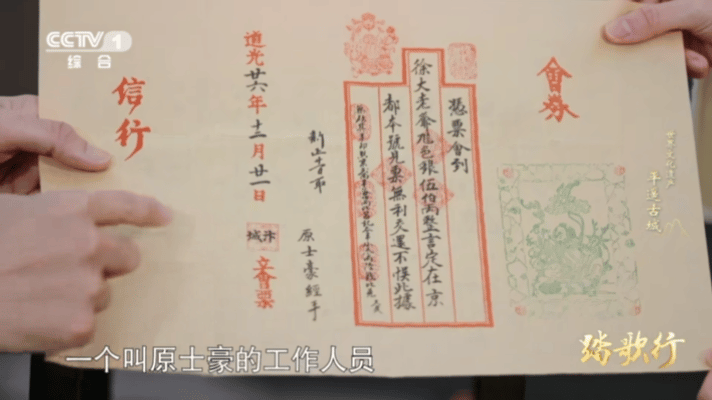 CCTV 1
综合
會券
憑票會到
徐大老爺色銀伍佰兩整言定在京
都本號見票無利交還不悞此據
原士豪經手
道光廿六年十二月廿一日
汴城
立會票
信行
平遥古城
一个叫原士豪的工作人员
踏歌行